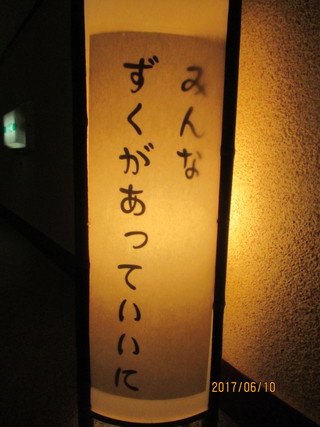 みんな
ずくがあっていいに
2017/06/10